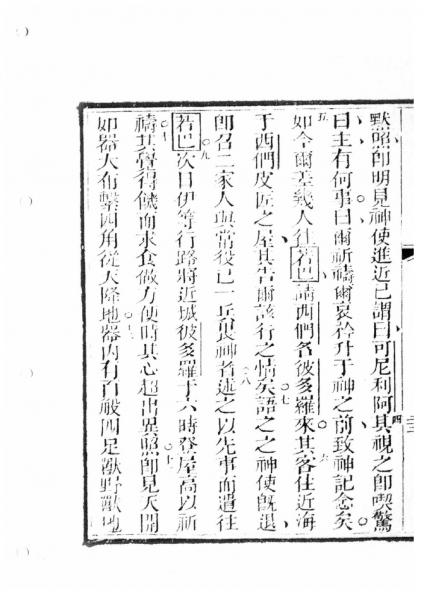 默照卽明見神使進近己謂曰可尼利阿其視之卽喫驚
四
曰主有何事曰爾祈禱爾哀矜升于神之前致神記念矣
五
如今爾差幾人往若巴請西們名彼多羅來其客住近海
六
于西們皮匠之屋其告爾該行之情矣語之之神使旣退
七
卽召二家人與常役己一兵畏神者述之以先事而遣往
八
若巴次日伊等行路將近城彼多羅于六時登屋高以祈
九
禱其覺得饑而求食做方便時其心超出異照卽見天開
十
十一
如器大布繫四角從天降地器內有百般四足獸野獸地
十二